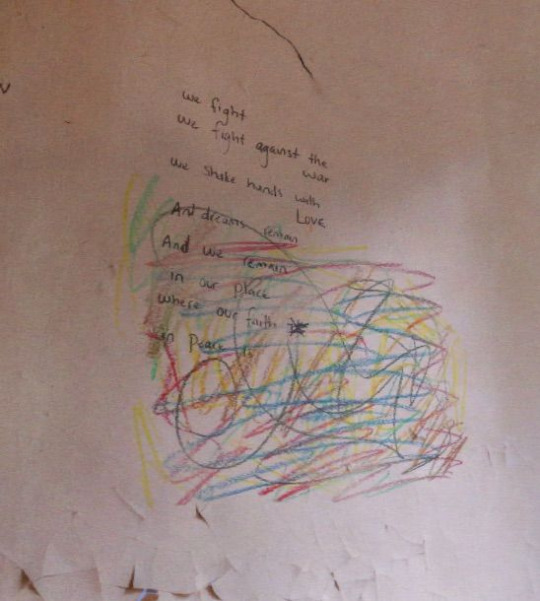 we fight
we fight against the
war
we shake hands with
Love
And dreams remain
And we remain
in our place
where our faith
in peace is